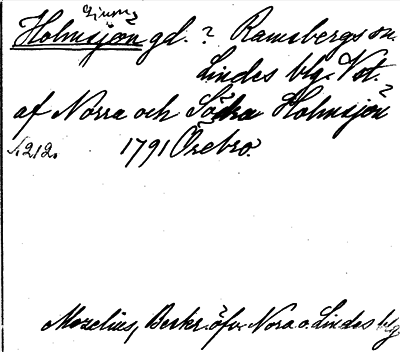 Holmsjön gd. ? Ramsbergs sn.
Lindes blg. Vstm.
af Norra och Södra Holmsjön ?
s. 212. 1791 Örebro.
Mozelius, Beskr. öfv. Nora o. Lindes blg